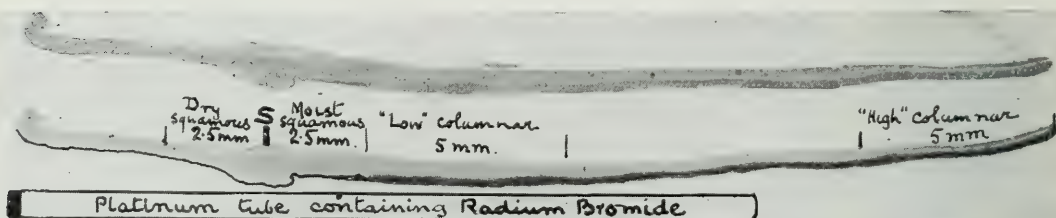 Dry
squamous
2.5mm
S
Moist
squamous
2.5mm.
"Low" columnar
5 mm.
"High" columnar
5 mm
Platinum tube containing Radium Bromide